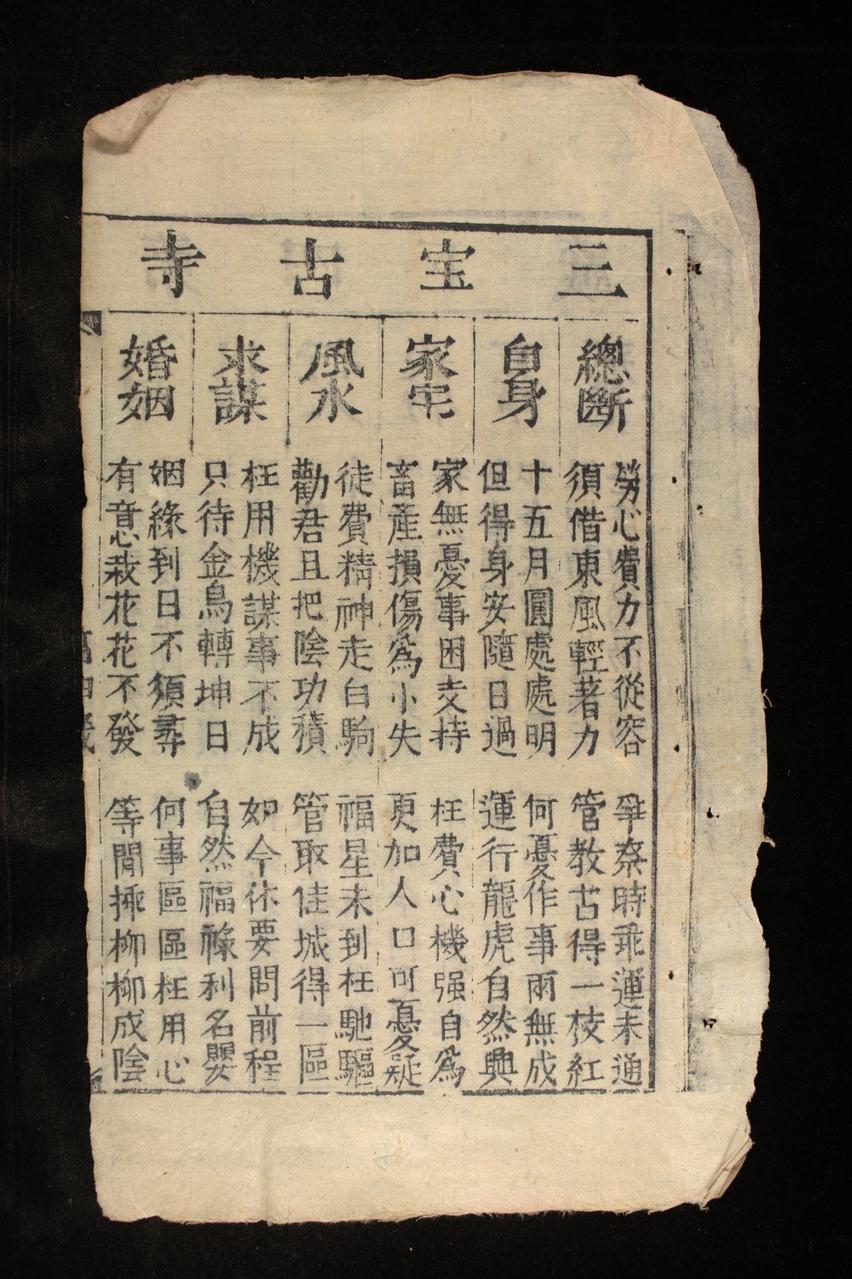 三宝古寺
總斷
勞心費力不從容 爭奈時乖運未通
須借東風輕著力 管教古得一枝紅
自身
十五月圓處處明 何憂作事雨無成
但得身安隨日過 運行龍虎自然興
家宅
家無憂事困支持 枉費心機强自為
畜產損傷為小失 更加人口可憂疑
風水
徒費精神走白駒 福星未到枉馳驅
勸君且把陰功積 管取佳城得一區
求謀
枉用機謀事不成 如今休要問前程
只待金烏轉坤日 自然福祿利名嬰
婚姻
姻緣到日不須尋 何事區區枉用心
有意栽花花不發 等閒揷柳柳成陰